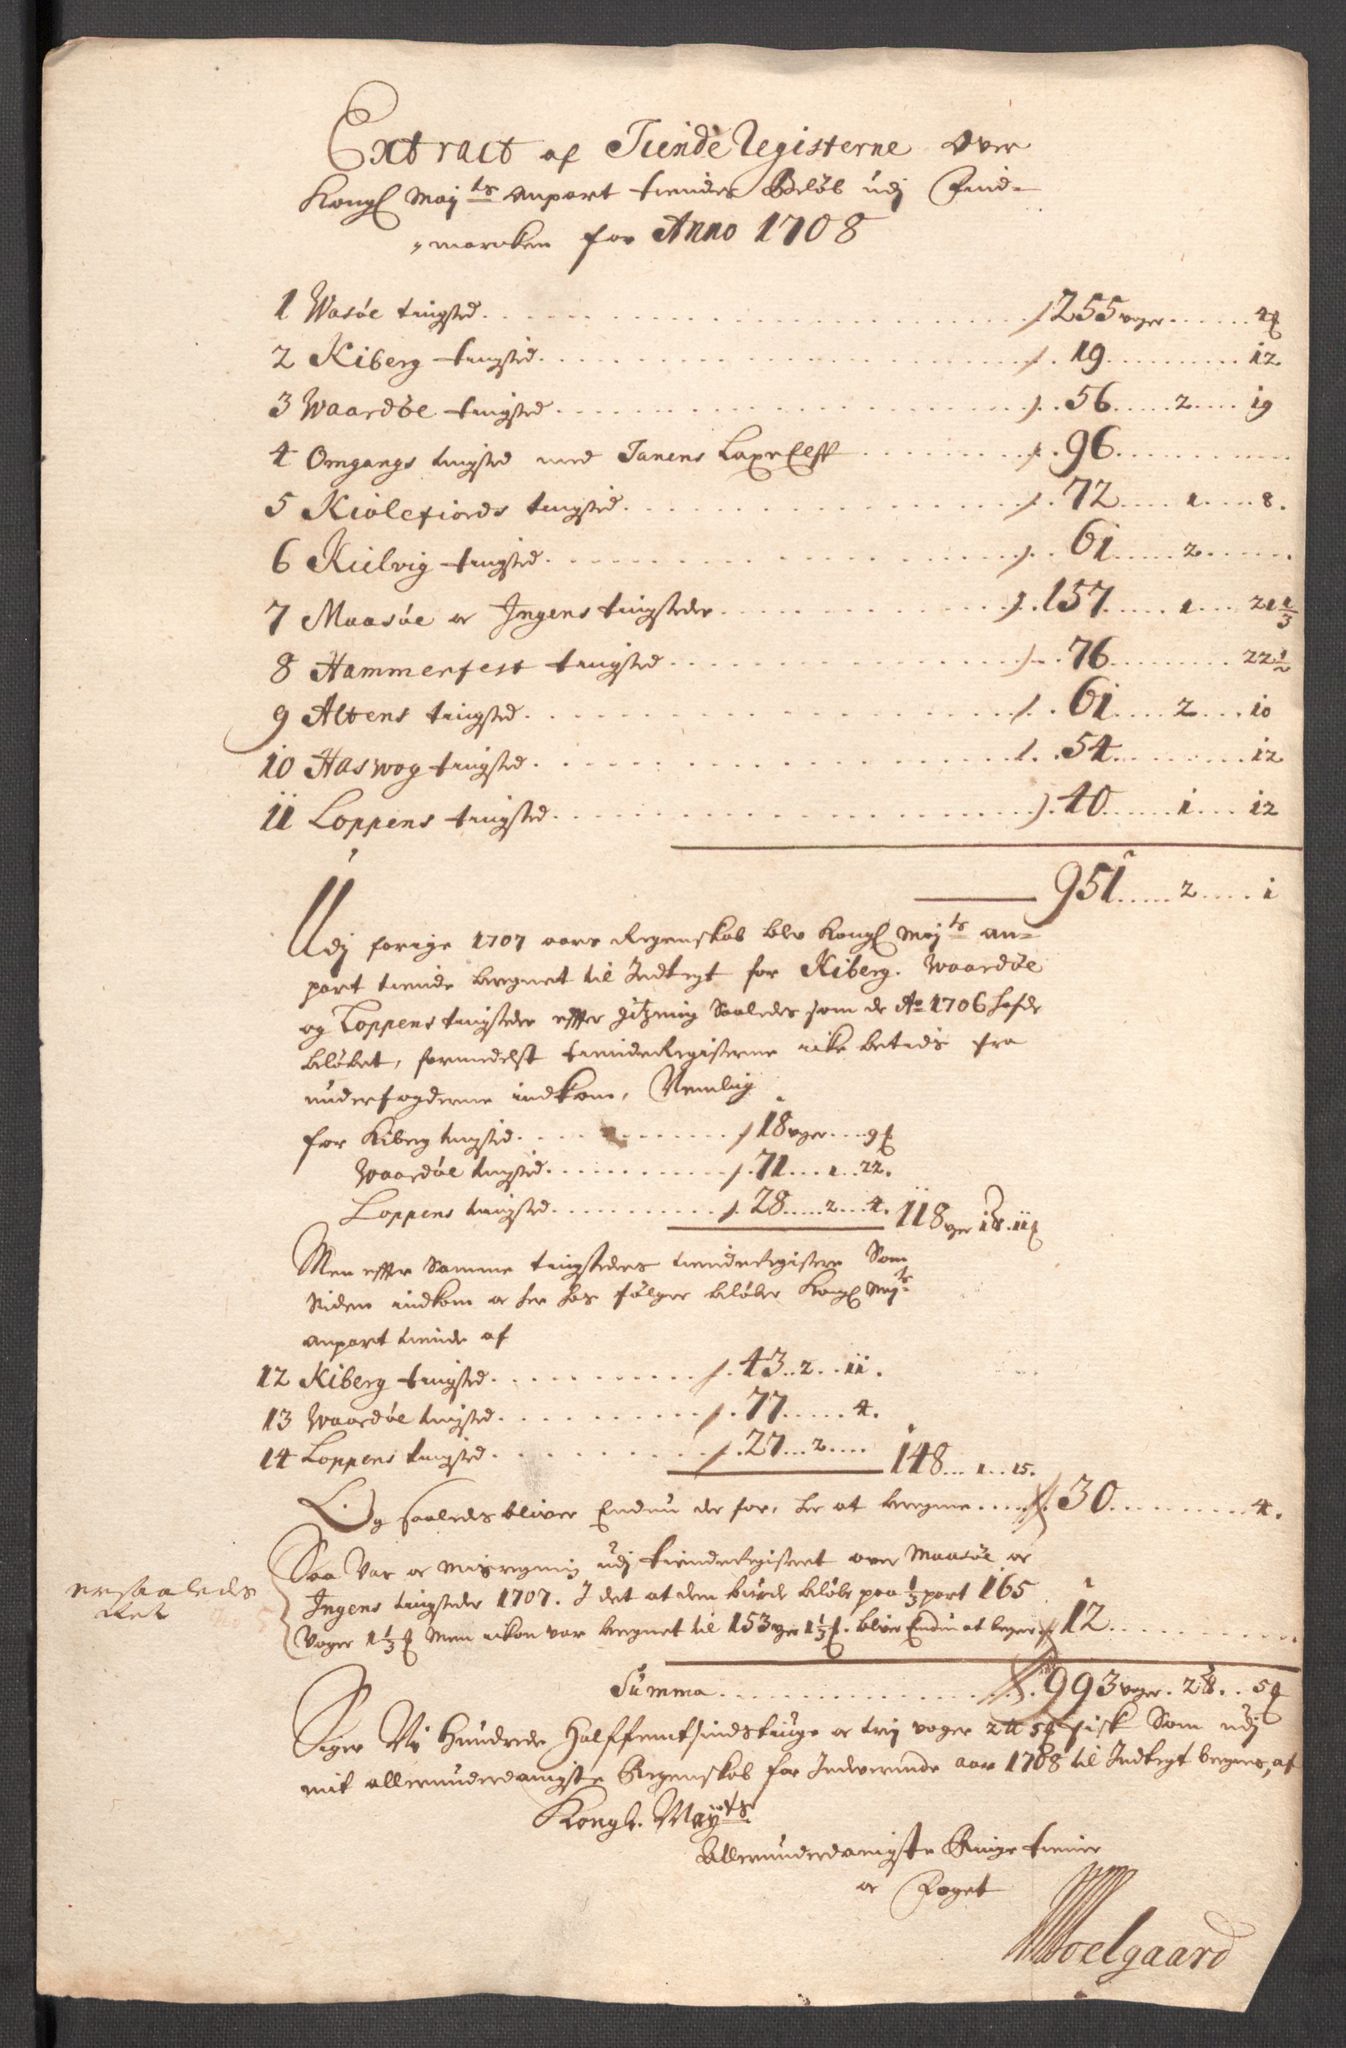 Extract af Tiende Registerne over
Kongl Mayts anpart tiendes Beløb udj Find-
marcken for Anno 1708
1 Wasøe tingsted 255 voger 4 ℔
2 Kiberg tingsted 19 12
3 Waardøe tingsted 56 2 19
4 Omgangs tingsted med Tanens Laxe Elff 96
5 Kiølefiords tingsted 72 1 8
6 Kielvig tingsted 61 2
7 Maasøe oc Ingens tingsteder 157 1 21 1/3
8 Hammerfest tingsted 76 22 1/2
9 Altens tingsted 61 2 10
10 Haswog tingsted 54 12
11 Loppens tingsted 40 1 12
951 2 1
Udj forige 1707 aars Regenskab blev Kongl Mayts an-
part tiende beregnet til Indtegt for Kiberg, Waardøe
og Loppens tingsteder effter gitzning saaledes som de Ao 1706 hafde
beløbet, formedelst tiende Registerne icke betids fra
underfogderne indkom, Nemlig
for Kiberg tingsted 18 voger 9 ℔
Waardøe tingsted 71 1 22
Loppens tingsted 28 2 4 118 voger 1 11 ℔
Men effter samme tingsteders tiende Registere som
siden indkom oc her hos følger beløber Kongl Mayts
anpart tiende af
12 Kiberg tingsted 43 2 11
13 Waardøe tingsted 77 4
14 Loppens tingsted 27 2 148 1 15
Og saaledes bliver Endnu der for, her at beregne 30 4
Saa var oc misregning udj tiende Registeret over Maasøe oc
Ingens tingsteder 1707. I det at dem burde beløbe paa 1/3 part 165
Voger 1 1/3 ℔ Men ickon var beregnet til 153 voger 1 1/3 ℔. bliver Endnu at beregne 12
er saaledes
Summa 993 voger 2 5 ℔
Siger Ni Hundrede Halffemtsindstiuge oc trej voger 2 5 ℔ fisk som udj
mit allerunderdanigste Regenskab for Indeverende aar 1708 til Indtegt beregnes, af
Kongl. Mayts
Allerunderdanigste Ringe tiener
oc Foget
Moelgaard